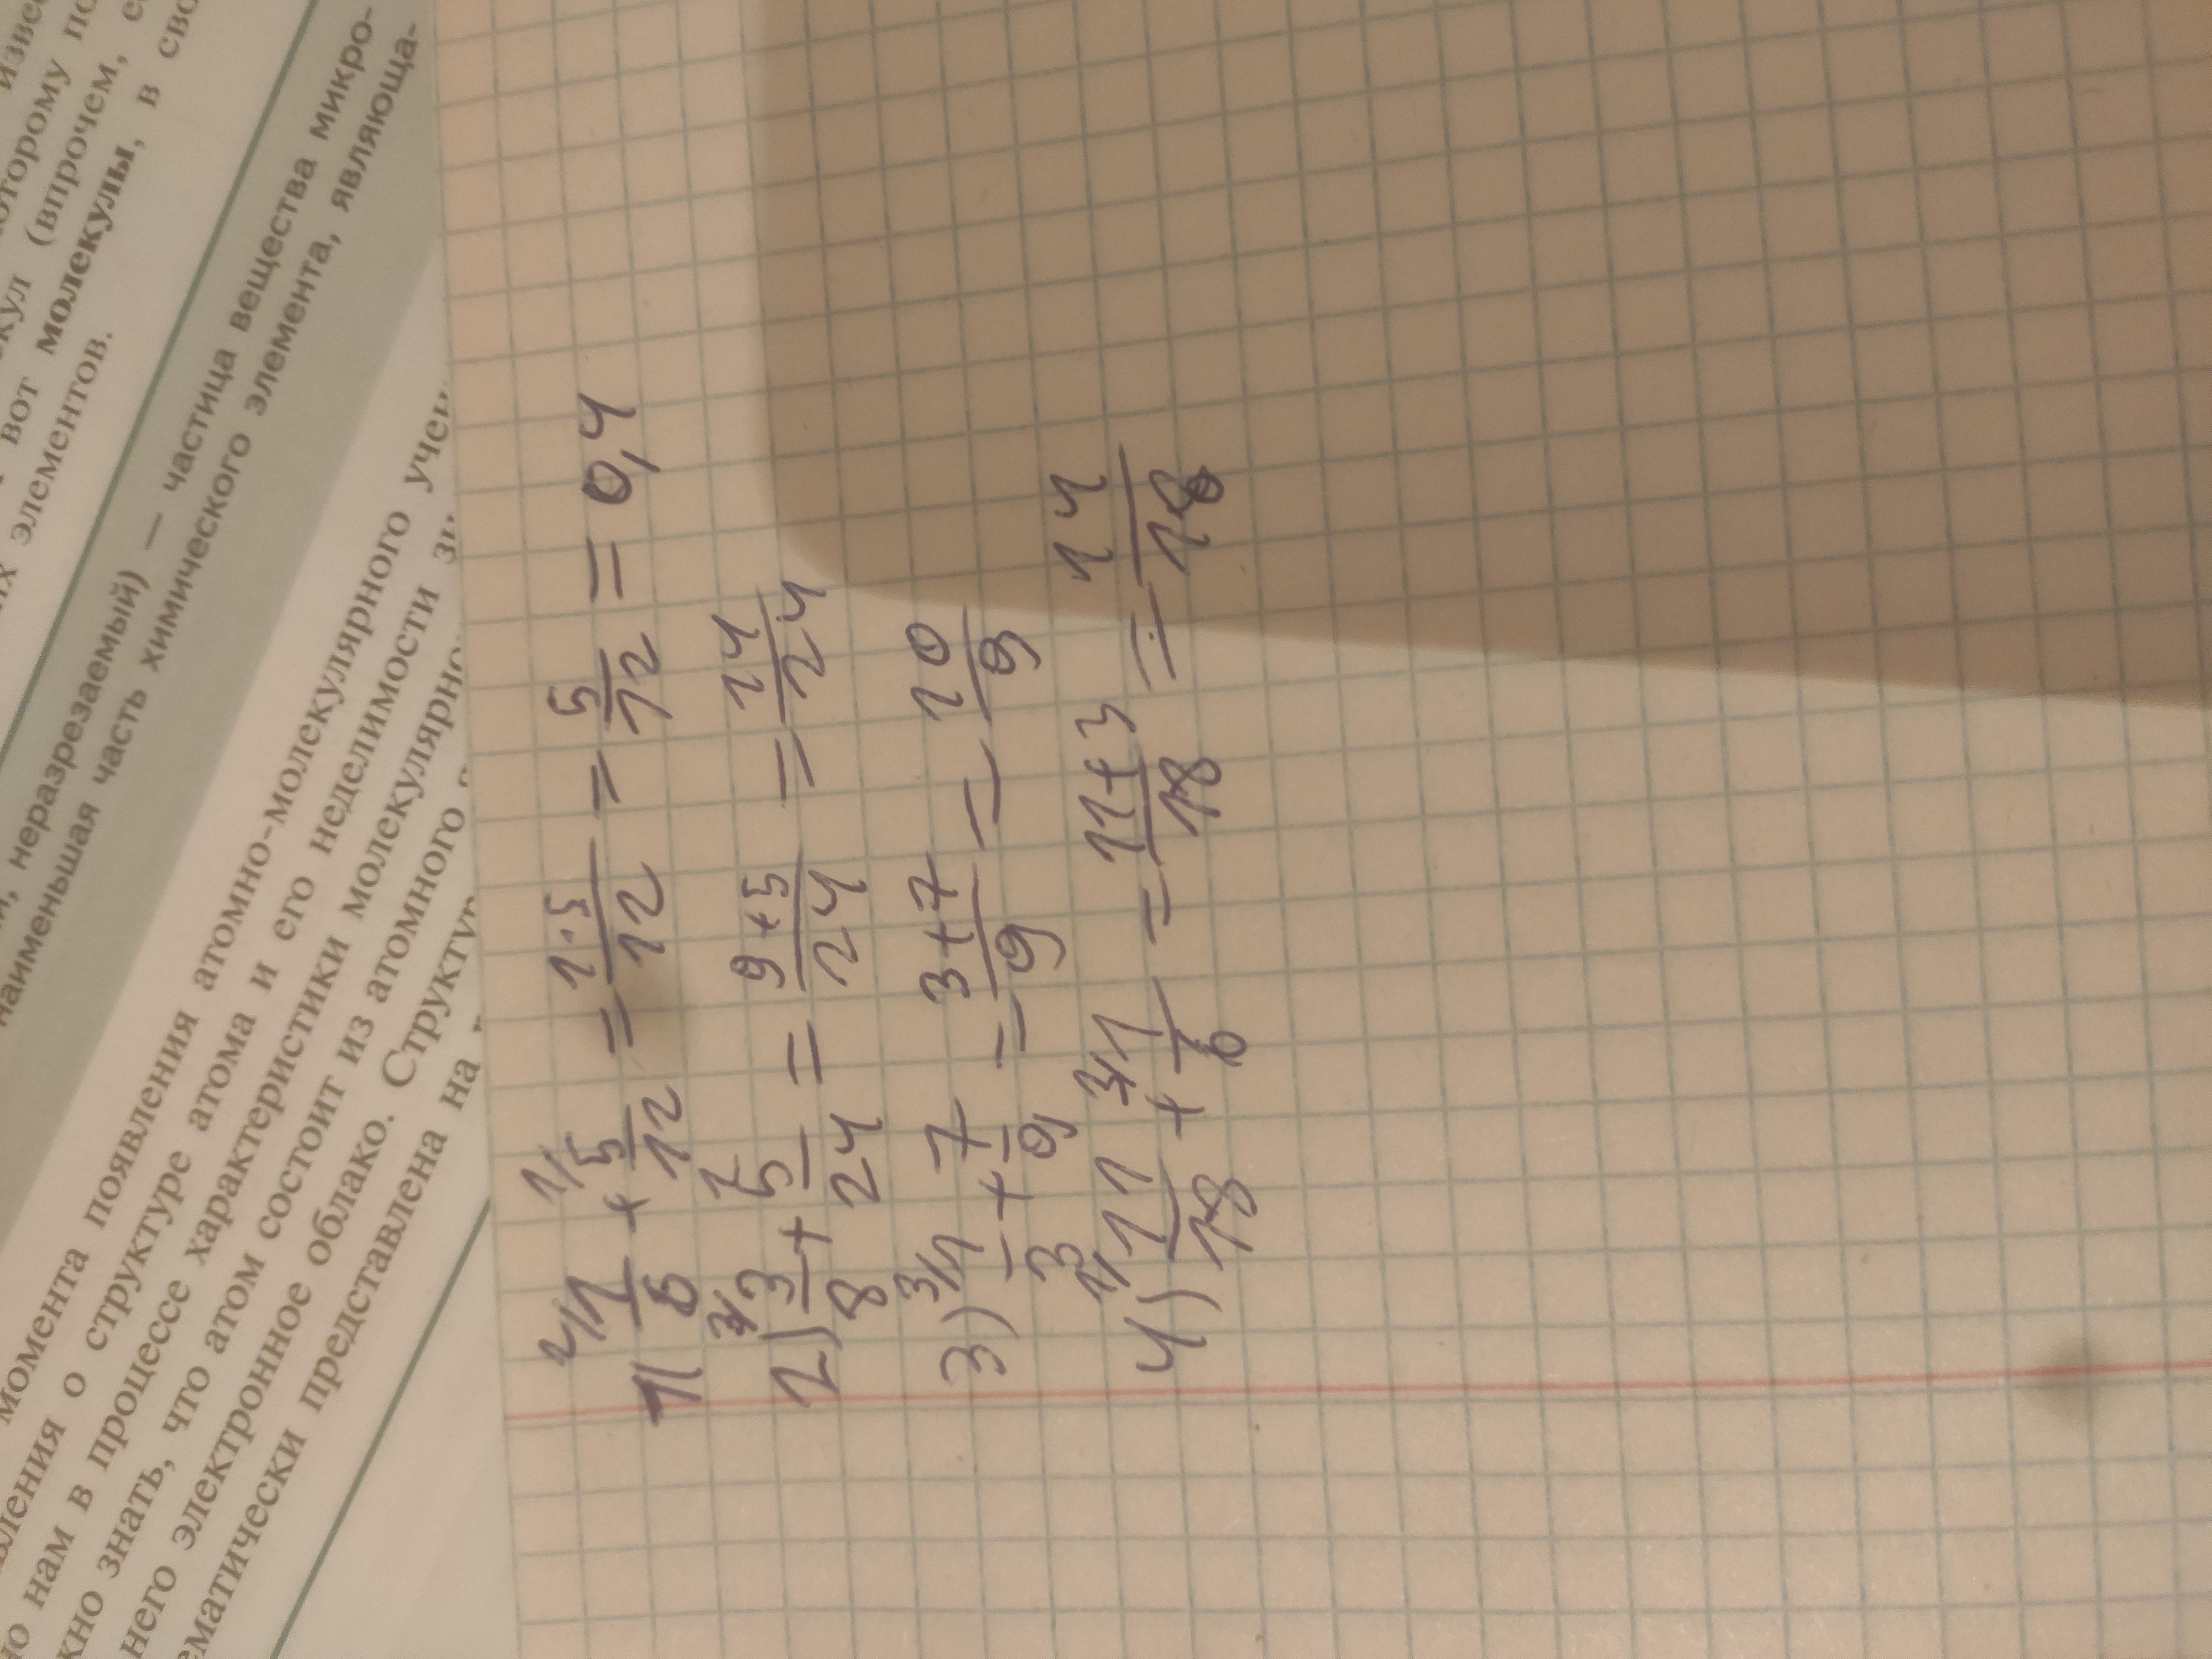 извес
которому по
кул (впрочем,
вот молекулы, в сво
их элементов.
неразрезаемый) — частица вещества микро-
наименьшая часть химического элемента, являюща-
момента появления атомно-молекулярного учен
вления о структуре атома и его неделимости
но нам в процессе характеристики молекулярно
жно знать, что атом состоит из атомного
него электронное облако. Структур
ематически представлена на
1) 2/ 1/6 + 1/ 5/12 = 1·5/12 = 5/12 = 0,4
2) 3/ 3/8 + 1/ 5/24 = 9+5/24 = 14/24
3) 3/ 1/3 + 7/9 = 3+7/9 = 10/9
4) 1/ 11/18 + 3/ 1/6 = 11+3/18 = 14/18